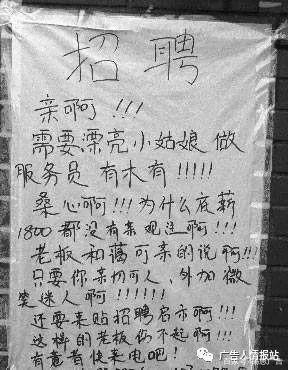 招聘
亲啊!!!
需要漂亮小姑娘 做
服务员 有木有!!!!!
桑心啊!!!为什么底薪
1800都没有来观注啊!!!
老板和蔼可亲的说啊!!!
只要你亲切可人、外加微
笑迷人啊!!!!!!
还要来贴招聘启示啊!!!
这样的老板伤不起啊!!!
有意者快来电吧!
广告人情报站